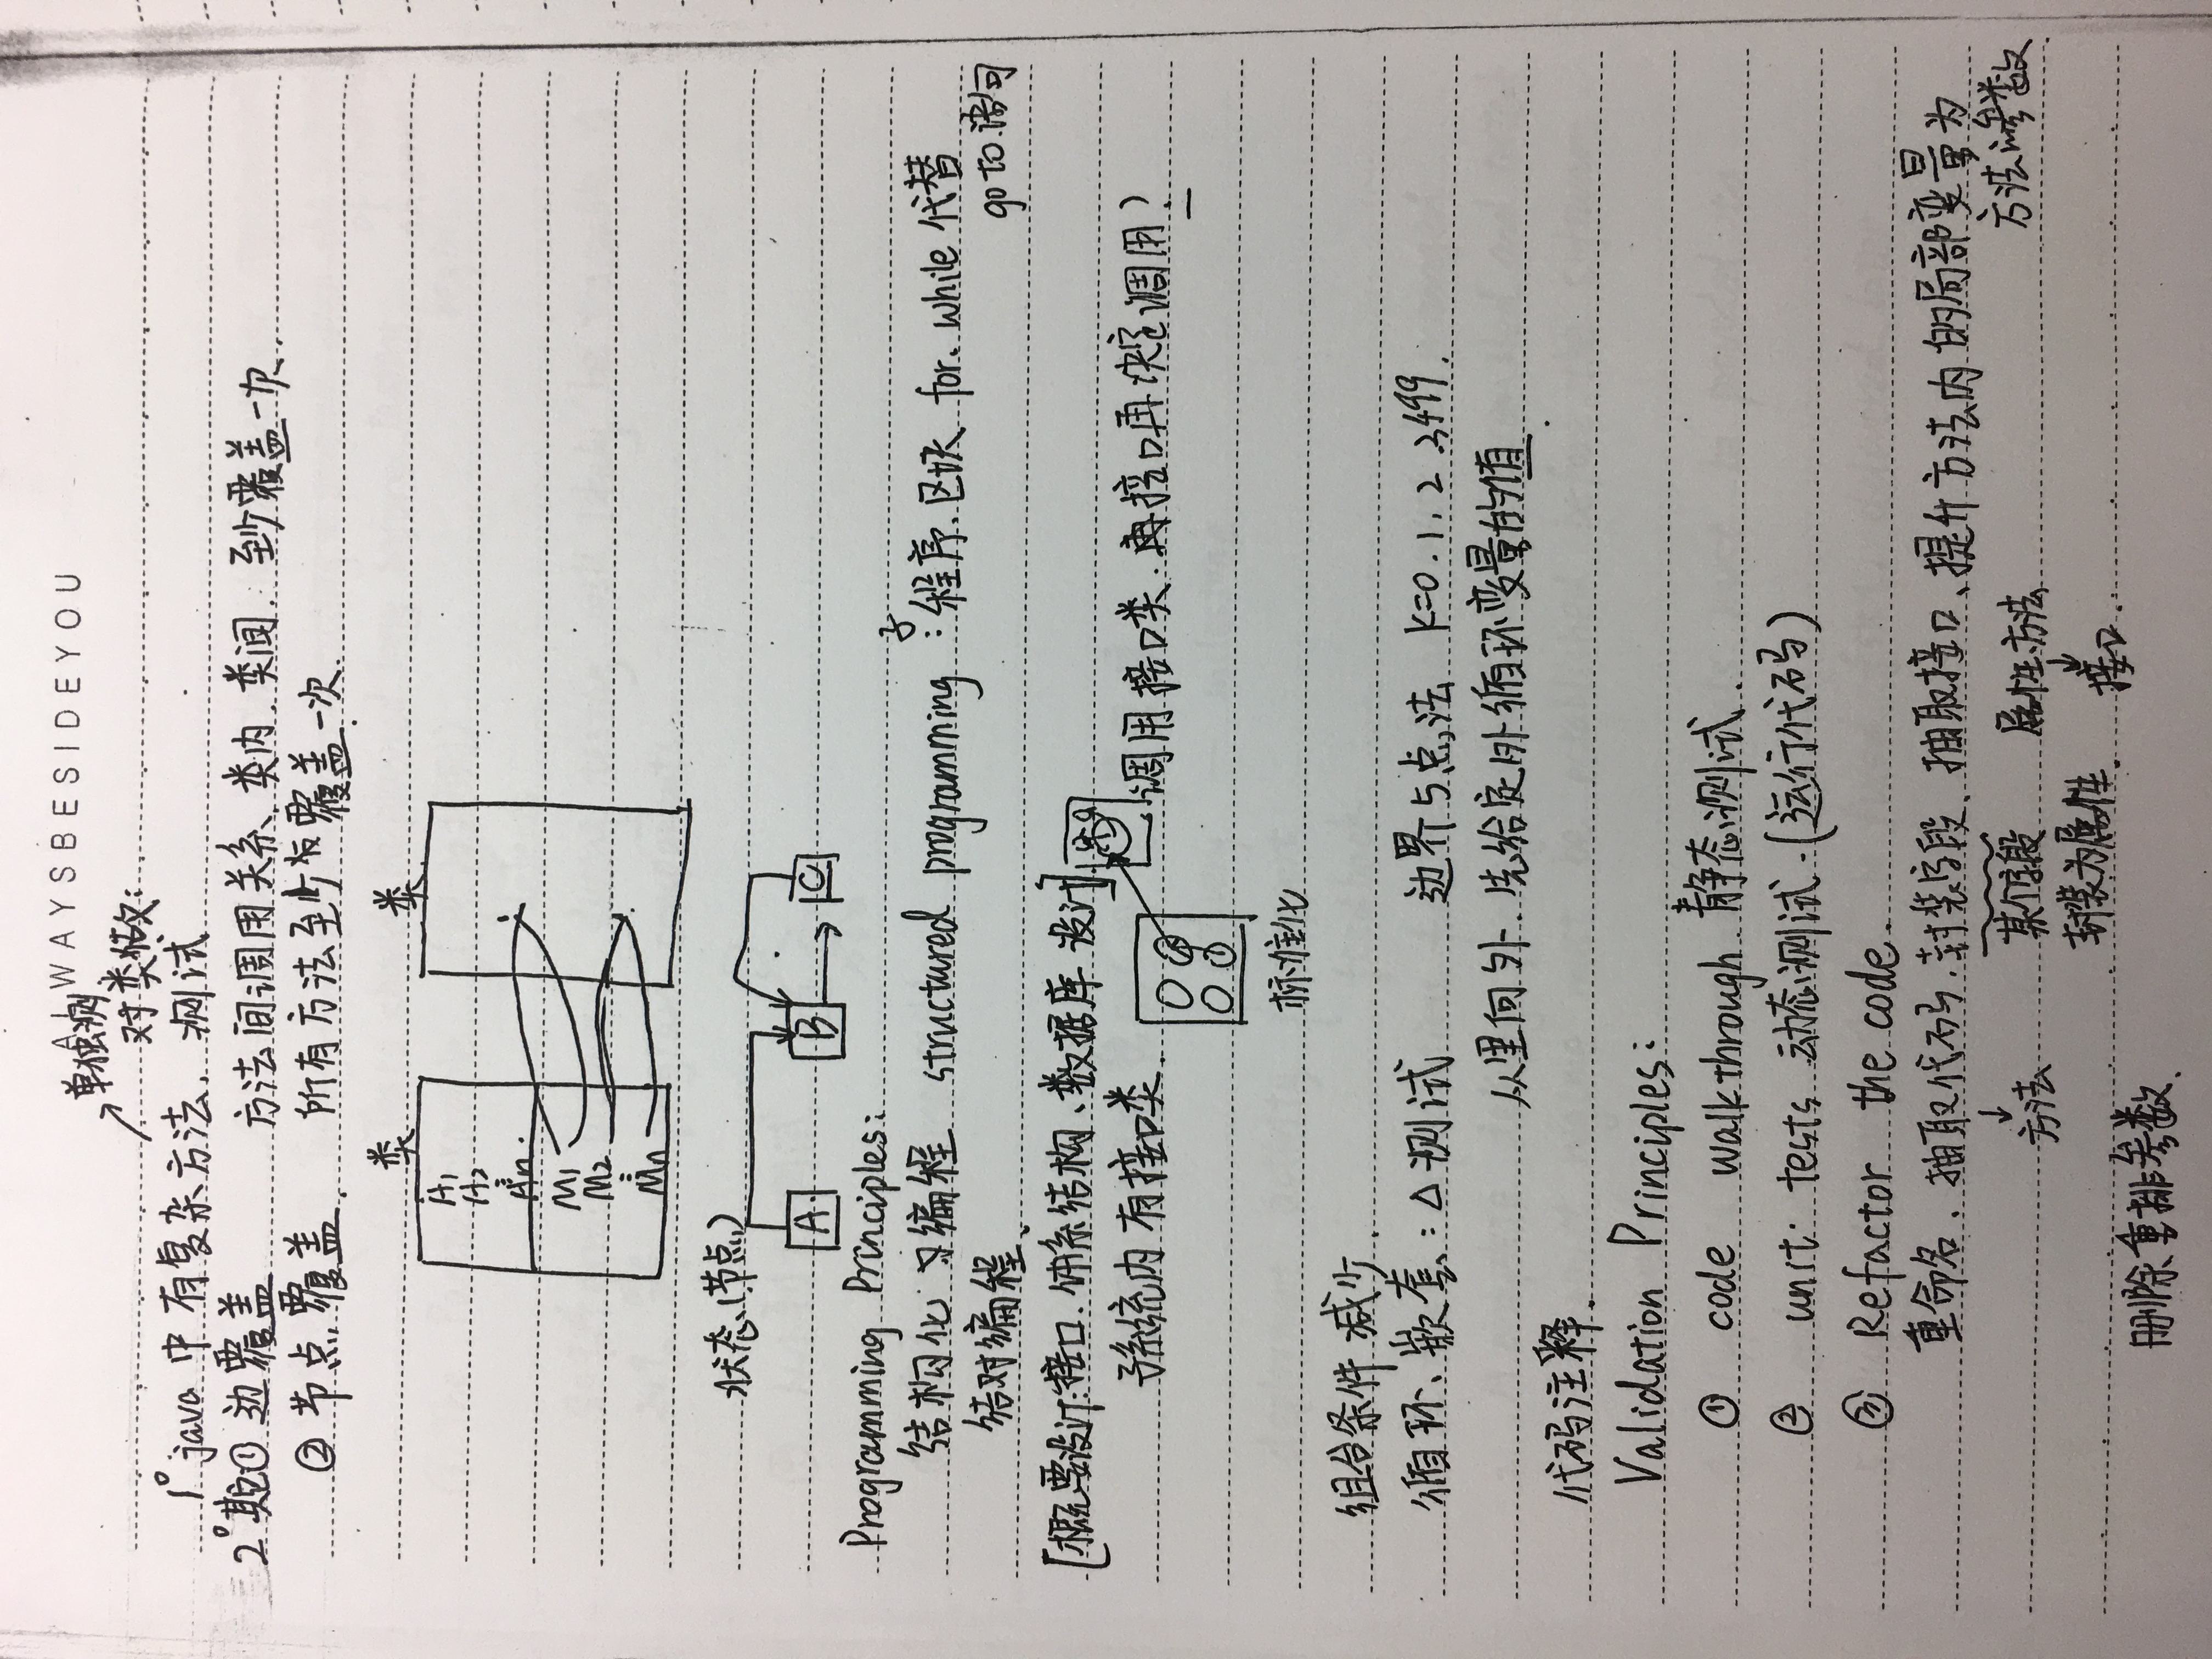 ALWAYSBESIDEYOU
单独测
对类做:
1° java 中有复杂方法. 测试
2° ① 边覆盖 方法间调用关系、类内、类间. 至少覆盖一次.
② 节点覆盖. 所有方法至少被覆盖一次.
类 类
A1
A2
⋮
An
M1
M2
⋮
Mn
状态(节点)
A B C
Programming Principles:
结构化 编程 structured programming : 子程序、区块 for、while 代替
goto 语句
结对编程、
[概要设计:接口、体系结构、数据库 设计]
子系统内有接口类. 调用接口类. 再接口再决定调用?
标准化
组合条件 减少.
循环、嵌套: △ 测试 边界5点法 K=0.1.2.3499.
从里向外. 先给定外循环变量的值.
代码注释.
Validation Principles:
① code walkthrough 静态测试.
② unit tests 动态测试.(运行代码)
③ Refactor the code.
重命名、抽取代码、封装字段、抽取接口、提升方法内的局部变量为
方法 参数.
↓ 方法 某个字段 属性、方法
封装为属性. ↓ 接口.
删除重排参数.